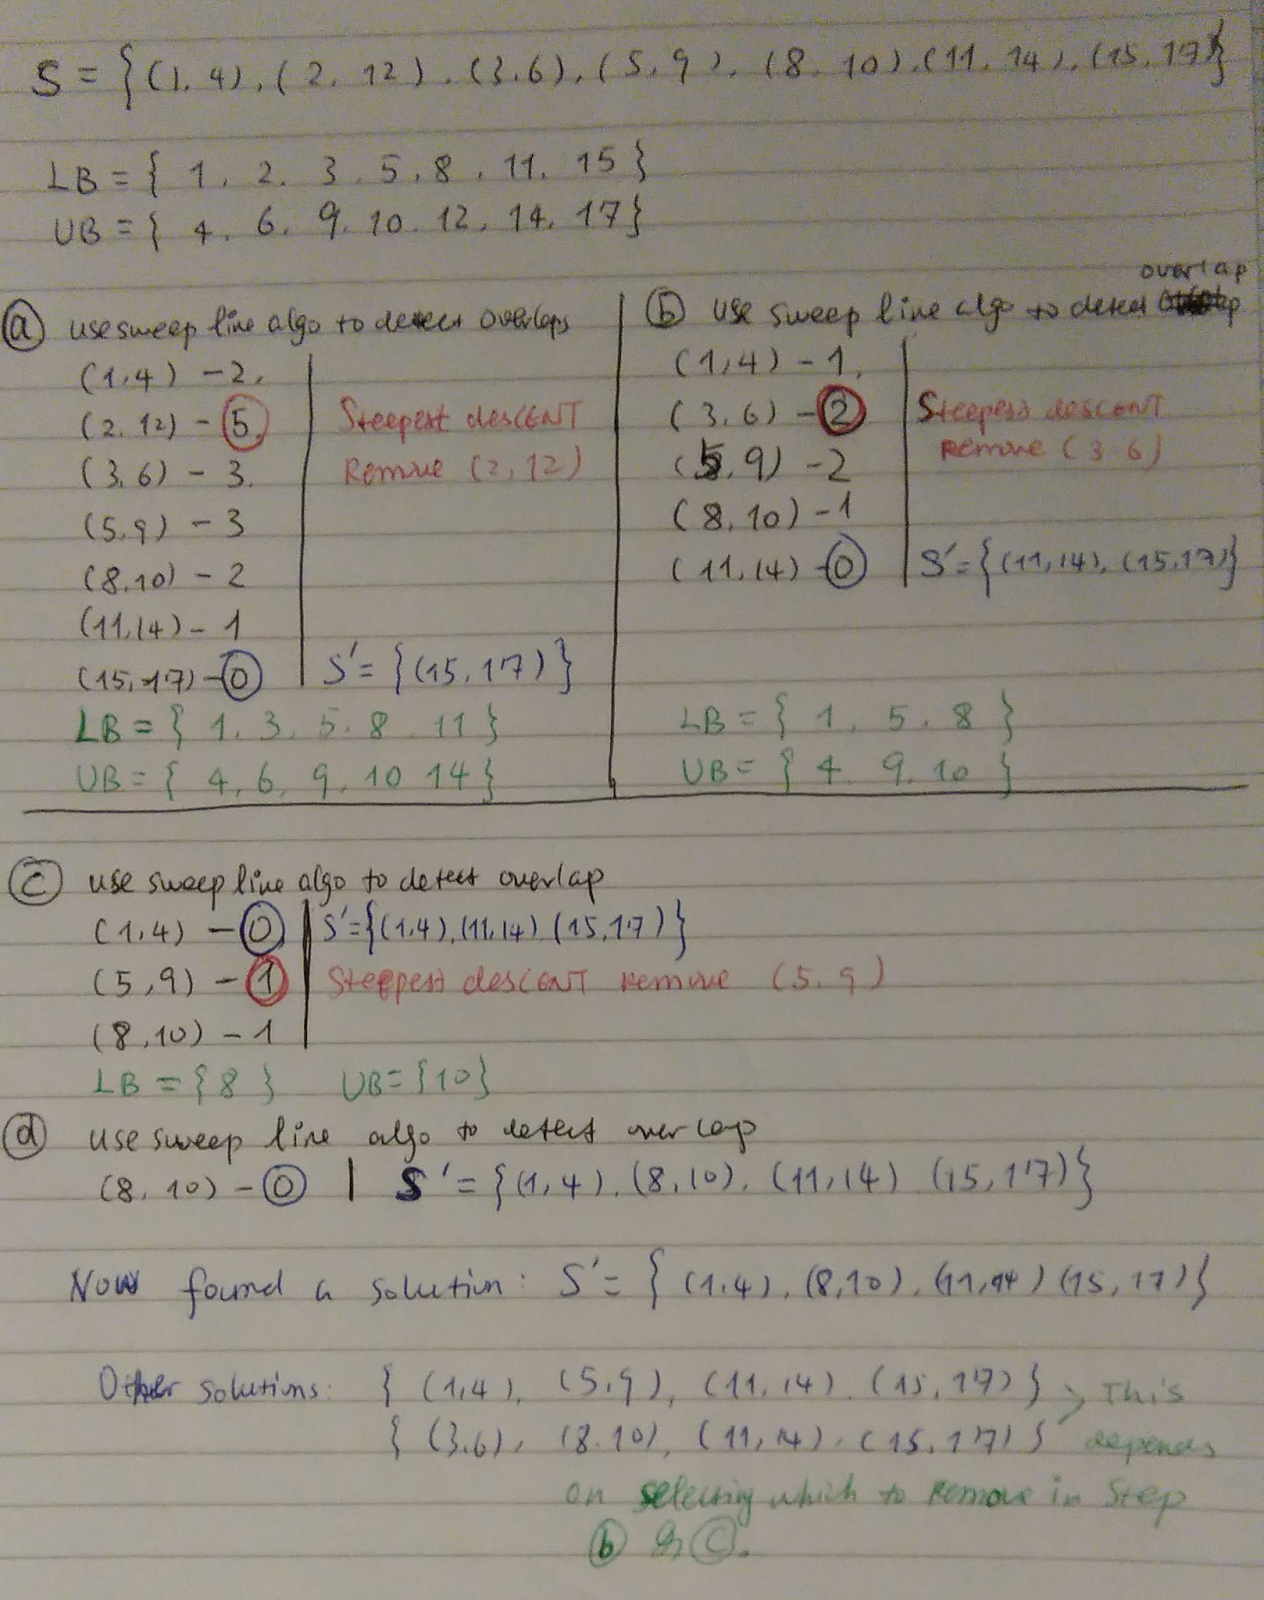 S = {(1, 4), (2, 12), (3, 6), (5, 9), (8, 10), (11, 14), (15, 17)}
LB = { 1, 2, 3, 5, 8, 11, 15 }
UB = { 4, 6, 9, 10, 12, 14, 17}
(a) use sweep line algo to detect overlaps
(1, 4) - 2
(2, 12) - 5
Steepest descENT
Remove (2, 12)
(3, 6) - 3
(5, 9) - 3
(8, 10) - 2
(11, 14) - 1
(15, 17) - 0 S' = { (15, 17) }
LB = { 1, 3, 5, 8, 11 }
UB = { 4, 6, 9, 10 14 }
(b) use sweep line algo to detect overlap
(1, 4) - 1
(3, 6) - 2
Steepest descENT
Remove (3 6)
(5, 9) - 2
(8, 10) - 1
(11, 14) - 0 S' = {(11, 14), (15, 17)}
LB = { 1, 5, 8 }
UB = { 4, 9, 10 }
(c) use sweep line algo to detect overlap
(1, 4) - 0 S' = {(1, 4), (11, 14) (15, 17) }
(5, 9) - 1 Steepest descENT Remove (5, 9)
(8, 10) - 1
LB = {8 } UB = {10}
(d) use sweep line algo to detect overlap
(8, 10) - 0 S' = {(1, 4), (8, 10), (11, 14) (15, 17)}
Now found a solution: S' = { (1, 4), (8, 10), (11, 14) (15, 17)}
Other solutions: { (1, 4), (5, 9), (11, 14) (15, 17) } > This
{ (3, 6), (8, 10), (11, 14), (15, 17) } depends
on selecting which to Remove in Step
(b) (c).